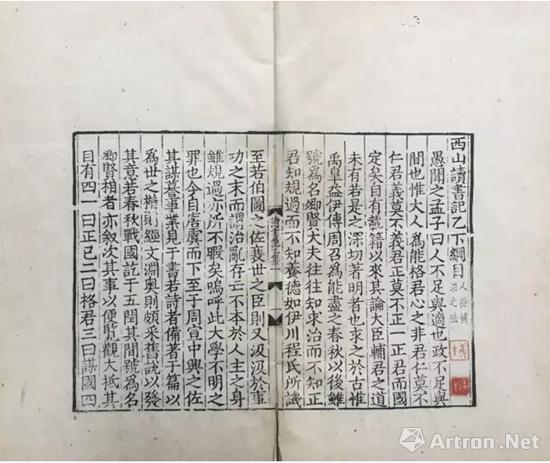 西山讀書記乙下綱目
人臣輔
治之法
愚聞之孟子曰人不足與適也政不足與
間也惟大人為能格君心之非君仁莫不
仁君義莫不義君正莫不正一正君而國
定矣自有載籍以來其論大臣輔君之道
未有若是之深切著明者也求之於古惟
禹皐益伊傅周召為能盡之春秋以後雖
號為名卿賢大夫往往知求治而不知正
君知規過而不知養德如伊川程氏所譏
至若伯圖之佐衰世之臣則又汲汲於事
功之末而謂治亂存亡不本於人主之身
雖規過亦所不暇矣嗚呼此大學不明之
罪也今自唐虞而下至于周宣中興之佐
其謀謩事業見于書若詩者備著于篇以
為世之楷則經文淵奥則頗采舊説以發
其意若春秋戰國訖于五閏其間號為名
卿賢相者亦叙次其事以便覧觀大抵其
目有四一曰正己二曰格君三曰謀國四
Artron.Net